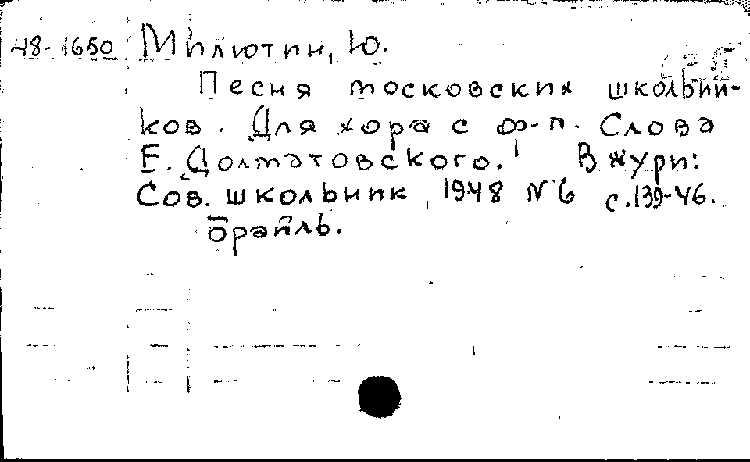 48-1650 Милютин, Ю.
Песня московских школьни-
ков. Для хора с ф-п. Слова
Е. Долматовского. В журн:
Сов. школьник, 1948 № 6 с.139-46.
брайль.